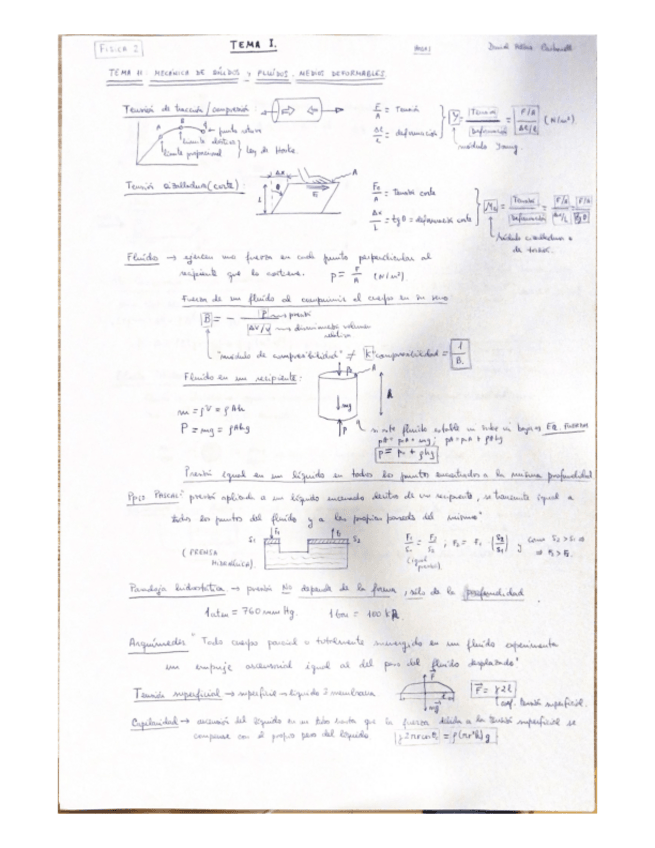 FISICA 2
TEMA I.
TEMA 11: MECÁNICA DE SÓLIDOS Y FLUÍDOS. MEDIOS DEFORMABLES.
Tensión de tracción/compresión:
F/A = Tensión
Δl/l = deformación
Y = Tensión/Deformación = F/A / Δl/l (N/m²)
módulo Young.
A B
punto rotura
límite elástico
límite proporcional } Ley de Hooke.
Tensión cizalladura (corte):
Δx A
L θ Fs
Fs/A = Tensión corte
Δx/L = tg θ = deformación corte
Ms = Tensión/Deformación = F/A / Δx/L = F/A / tg θ
Módulo cizalladura o de torsión.
Fluido → ejercen una fuerza en cada punto perpendicular al
recipiente que lo contiene. P = F/A (N/m²).
Fuerza de un fluido al comprimir el cuerpo en su seno
B = - P / ΔV/V
presión
disminución volumen relativa
"módulo de compresibilidad" ≠ K compresibilidad = 1/B.
Fluido en un recipiente:
P₀ A
h
mg
P
m = ρV = ρAh
P = mg = ρAhg
EQ. FUERZAS
PA = P₀A + mg; PA = P₀A + ρAhg
P = P₀ + ρhg
Presión igual en un líquido en todos los puntos encontrados a la misma profundidad
Ppio PASCAL: "presión aplicada a un líquido encerrado dentro de un recipiente, se transmite igual a
todos los puntos del fluido y a las propias paredes del mismo"
(PRENSA HIDRÁULICA).
S₁ F₁ F₂ S₂
F₁/S₁ = F₂/S₂; F₂ = F₁ · (S₂/S₁) y como S₂ > S₁ ⇒
⇒ F₂ > F₁.
(igual presión).
Paradoja hidrostática → presión No depende de la forma, sólo de la profundidad
1 atm = 760 mm Hg. 1 bar = 100 kPa
Arquímedes "Todo cuerpo parcial o totalmente sumergido en un fluido experimenta
un empuje ascensorial igual al del peso del fluido desplazado"
Tensión superficial → superficie líquido = membrana
F
mg
F = γ2l
coef. tensión superficial.
Capilaridad → ascensión del líquido en un tubo hasta que la fuerza debida a la tensión superficial se
compense con el propio peso del líquido γ2πr cos θ = ρ(πr²h)g